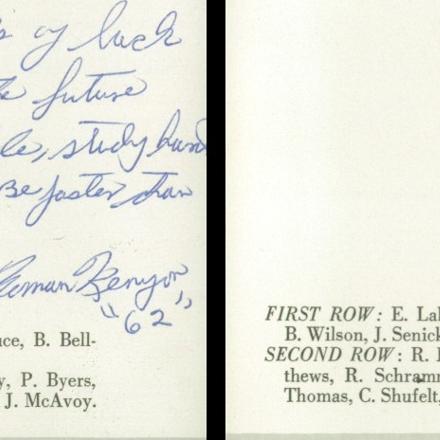 of luck
future
study hard
Be faster than
Roman Kenyon
"62"
B. Bell-
P. Byers,
J. McAvoy.
FIRST ROW: E.
B. Wilson, J.
SECOND ROW: R.
thews, R. Schramm
Thomas, C. Shufelt,